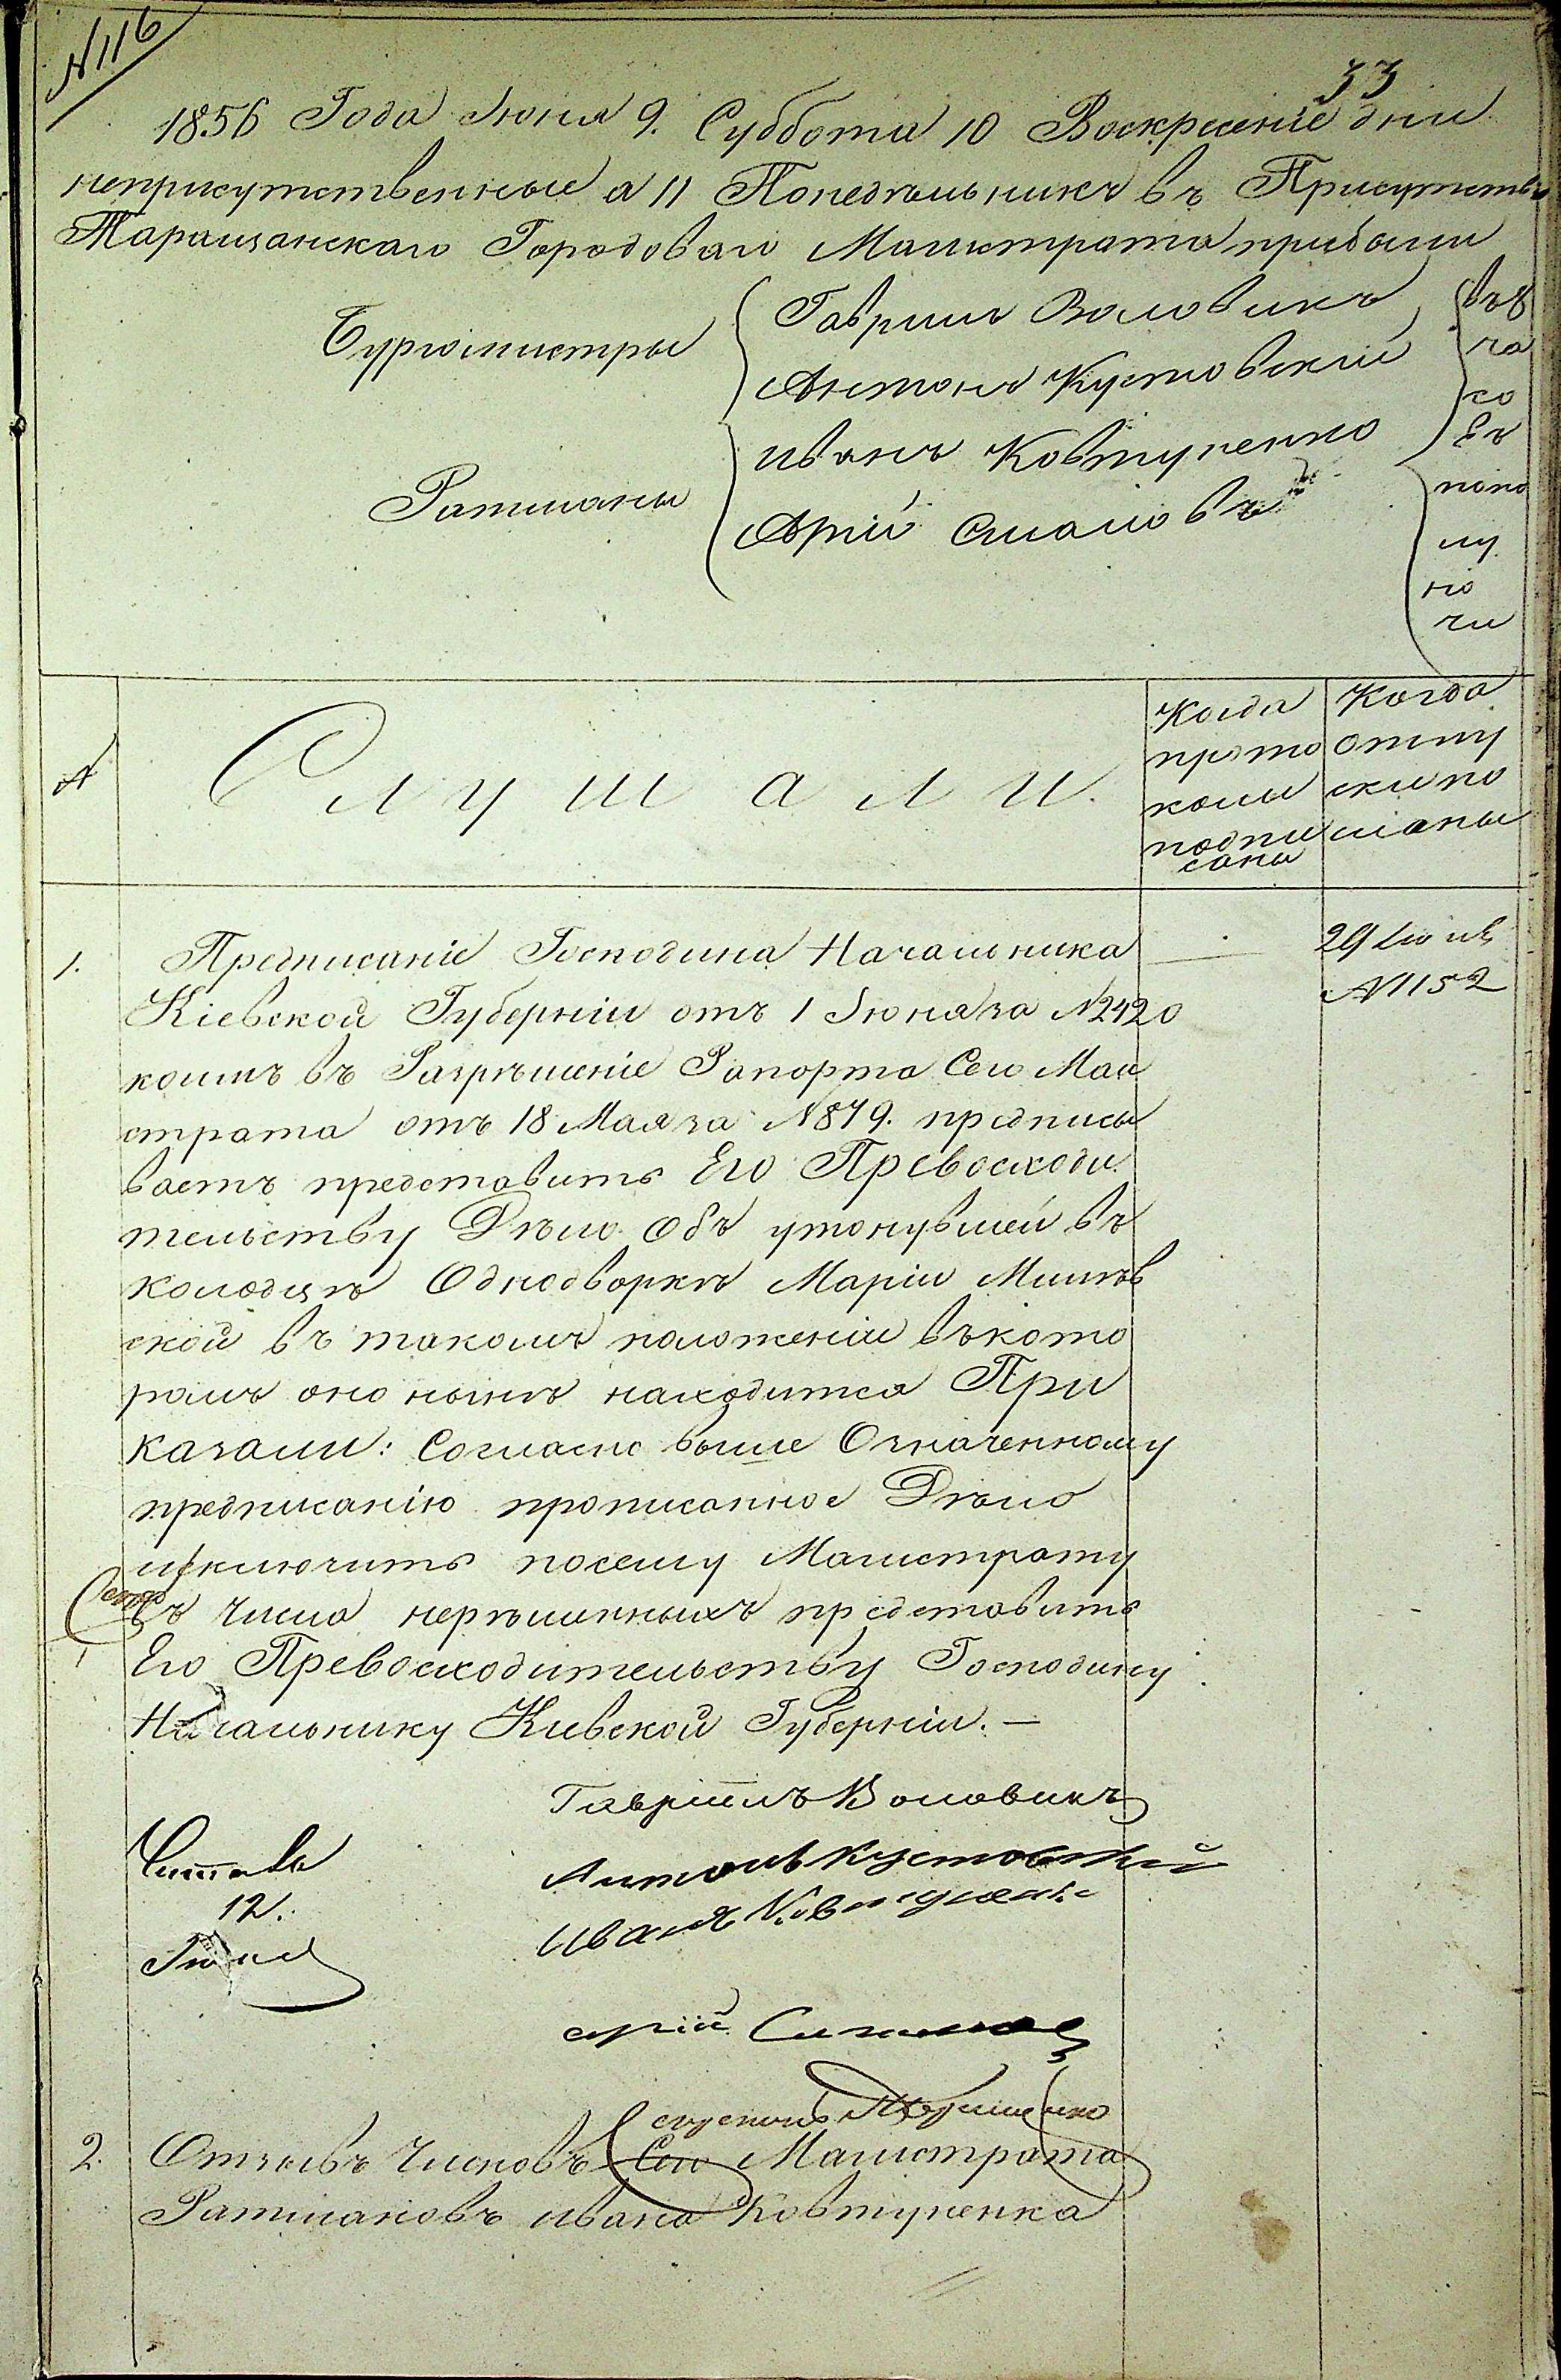 N116
33
1856 Года Июня 9. Суббота 10 Воскресеніе дни
неприсутственные а 11 Понедѣльникъ въ Присутствіе
Таращанскаго Городоваго Магистрата прибыли
Бургомистры
Гаврилъ Воловикъ
Антонъ Кустовскій
Ратманы
Иванъ Ковтуненко
Арій Смаловъ
въ 8
ча
со
въ
попо
лу
но
чи
№
Слушали.
Когда
прото
колы
подпи
саны
Когда
отпу
ски по
сланы
1.
Предписаніе Господина Начальника
Кіевской Губерніи отъ 1 Июня за N2420
коимъ въ Разрѣшеніе Рапорта Сего Маги
страта отъ 18 Мая за N879. предписы
ваетъ представить Его Превосходи
тельству Дѣло Объ утонувшей въ
колодцѣ Однодворкѣ Маріи
ской въ такомъ положеніи въ кото
ромъ оно нынѣ находится При
казали: Согласно выше Означенному
предписанію прописанное Дѣло
исключить посему Магистрату
съ числа нерѣшенныхъ представить
Его Превосходительству Господину
Начальнику Киевской Губерніи. —
29 Июня
N1152
Гавріилъ Воловикъ
Антонъ Кустовскій
Иванъ Ковтуненко
Арій
Читалъ
12.
2.
Отзывъ Членовъ Сего Магистрата
Ратмановъ Ивана Ковтуненка